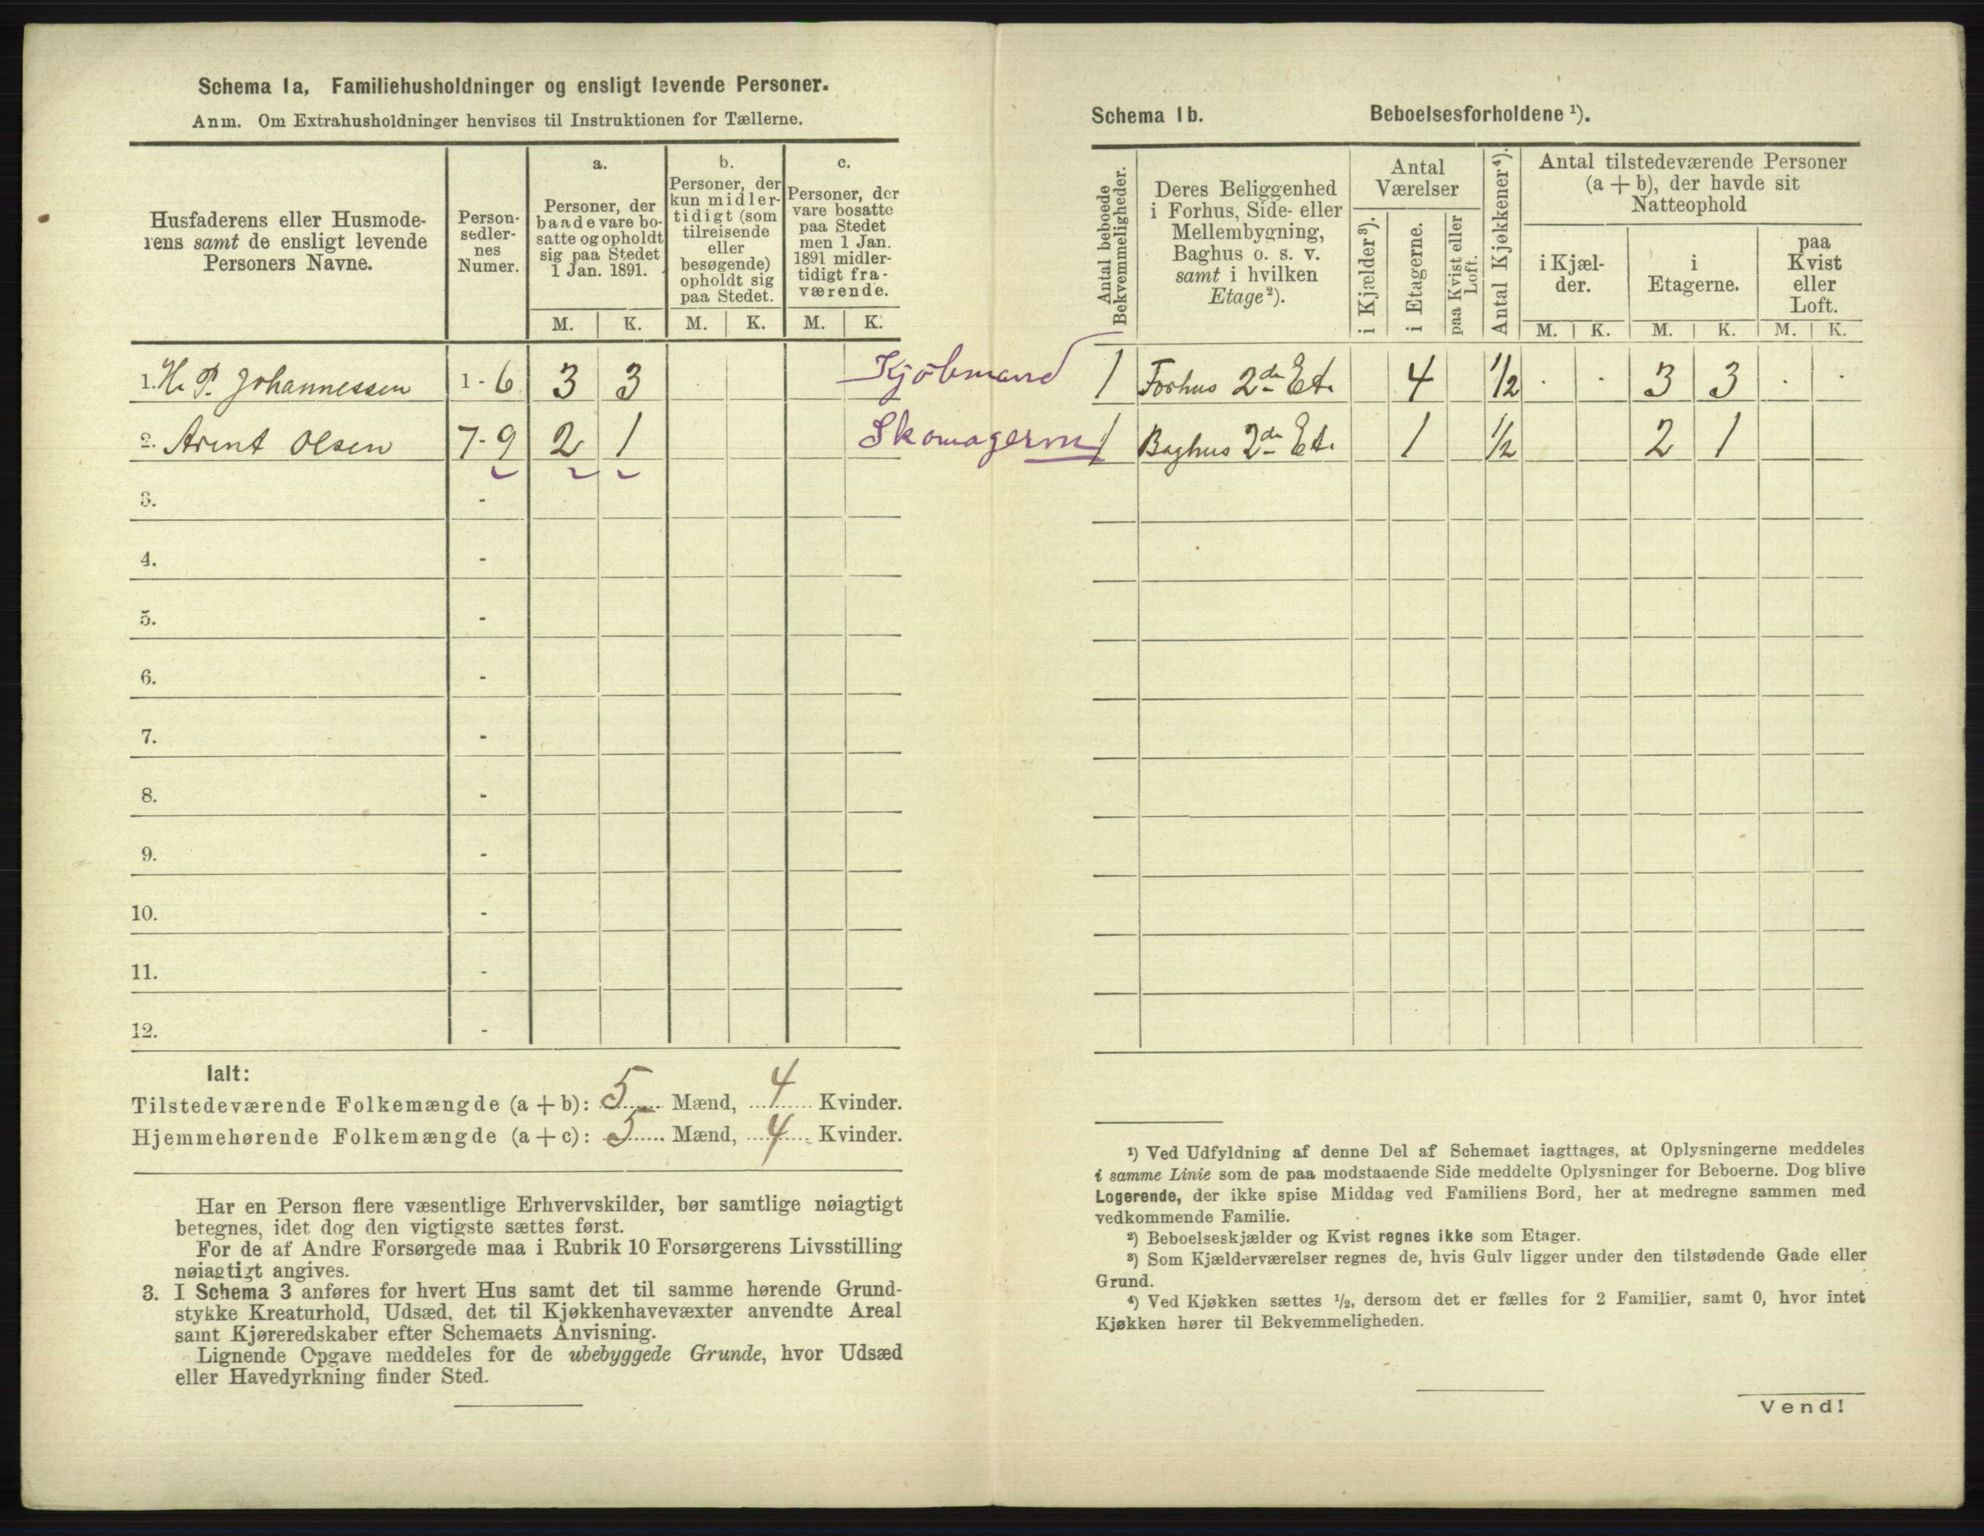 Schema 1a, Familiehusholdninger og ensligt levende Personer.
Anm. Om Extrahusholdninger henvises til Instruktionen for Tællerne.
Husfaderens eller Husmode-
rens samt de ensligt levende
Personers Navne.
Person-
sedler-
nes
Numer.
a.
Personer, der
baade vare bo-
satte og opholdt
sig paa Stedet
1 Jan. 1891.
b.
Personer, der
kun midler-
tidigt (som
tilreisende
eller
besøgende)
opholdt sig
paa Stedet.
c.
Personer, der
vare bosatte
paa Stedet
men 1 Jan.
1891 midler-
tidigt fra-
værende.
M. K. M. K. M. K.
1. H. P. Johannessen 1 - 6 3 3 Kjøbmand
2. Arent Olsen 7 - 9 2 1
3. -
4. -
5. -
6. -
7. -
8. -
9. -
10. -
11. -
12. -
Ialt:
Tilstedeværende Folkemængde (a + b): 5 Mænd, 4 Kvinder.
Hjemmehørende Folkemængde (a + c): 5 Mænd, 4 Kvinder.
Har en Person flere væsentlige Erhvervskilder, bør samtlige nøiagtigt
betegnes, idet dog den vigtigste sættes først.
For de af Andre Forsørgede maa i Rubrik 10 Forsørgerens Livsstilling
nøiagtigt angives.
3. I Schema 3 anføres for hvert Hus samt det til samme hørende Grund-
stykke Kreaturhold, Udsæd, det til Kjøkkenhavevæxter anvendte Areal
samt Kjøreredskaber efter Schemaets Anvisning.
Lignende Opgave meddeles for de ubebyggede Grunde, hvor Udsæd
eller Havedyrkning finder Sted.
Schema 1b. Beboelsesforholdene ¹).
Antal beboede
Bekvemmeligheder.
Deres Beliggenhed
i Forhus, Side- eller
Mellembygning,
Baghus o. s. v.
samt i hvilken
Etage²).
Antal
Værelser
i Kjælder³).
i Etagerne.
paa Kvist eller
Loft.
Antal Kjøkkener⁴).
Antal tilstedeværende Personer
(a + b), der havde sit
Natteophold
i Kjæl-
der.
i
Etagerne.
paa
Kvist
eller
Loft.
M. K. M. K. M. K.
1 Forhus 2de Et. 4 1/2 . . 3 3 . .
1 Baghus 2de Et. 1 1/2 2 1
¹) Ved Udfyldning af denne Del af Schemaet iagttages, at Oplysningerne meddeles
i samme Linie som de paa modstaaende Side meddelte Oplysninger for Beboerne. Dog blive
Logerende, der ikke spise Middag ved Familiens Bord, her at medregne sammen med
vedkommende Familie.
²) Beboelseskjælder og Kvist regnes ikke som Etager.
³) Som Kjælderværelser regnes de, hvis Gulv ligger under den tilstødende Gade eller
Grund.
⁴) Ved Kjøkken sættes ½, dersom det er fælles for 2 Familier, samt 0, hvor intet
Kjøkken hører til Bekvemmeligheden.
Vend!